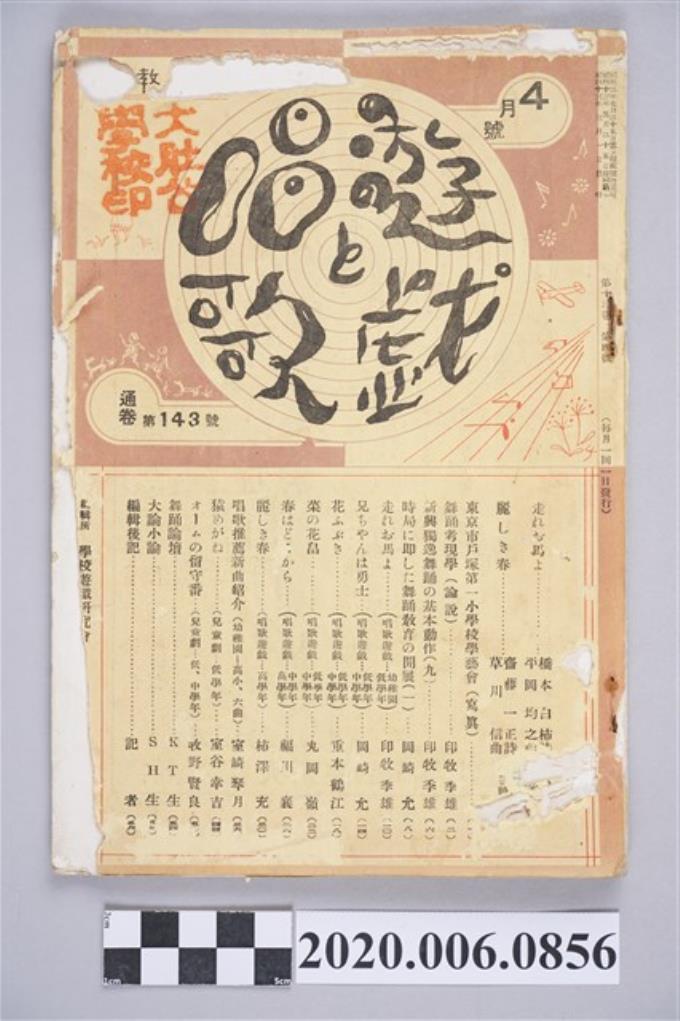 4
月
號
遊戲
と
唱歌
教
大肚公
學校印
通卷 第143號
(每月一回一日發行)
走れお馬よ………… 橋本白柿
平岡均之
麗しき春………… 齋藤一正詩
草川信曲
東京市戶塚第一小學校學藝會(寫眞)
舞踊考現學(論說)………… 印牧季雄
新興獨逸舞踊の基本動作(九)………… 印牧季雄
時局に即した舞踊教育の開展(一)… 岡崎允
走れお馬よ…(唱歌遊戲…幼稚園 低學年) 印牧季雄
兄ちゃんは勇士…(唱歌遊戲…低、中學年)… 岡崎允
花ふぶき………(唱歌遊戲…低學年 中學年)… 重本鶴江
菜の花畠………(唱歌遊戲…低學年 中學年)… 丸岡嶺
春はどこから……(唱歌遊戲…中學年 高學年)… 細川襄
麗しき春………(唱歌遊戲…高學年)… 柿澤充
唱歌推薦新曲紹介(幼稚園—高小、六曲)… 室崎琴月
猿めがね…(兒童劇 低學年)… 室谷幸吉
オームの留守番…(兒童劇…低、中學年)… 牧野賢良
舞踊論壇………… KT生
大論小論………… SH生
編輯後記………… 記者
編輯所 學校遊戲研究會
2020.006.0856
1cm
5cm